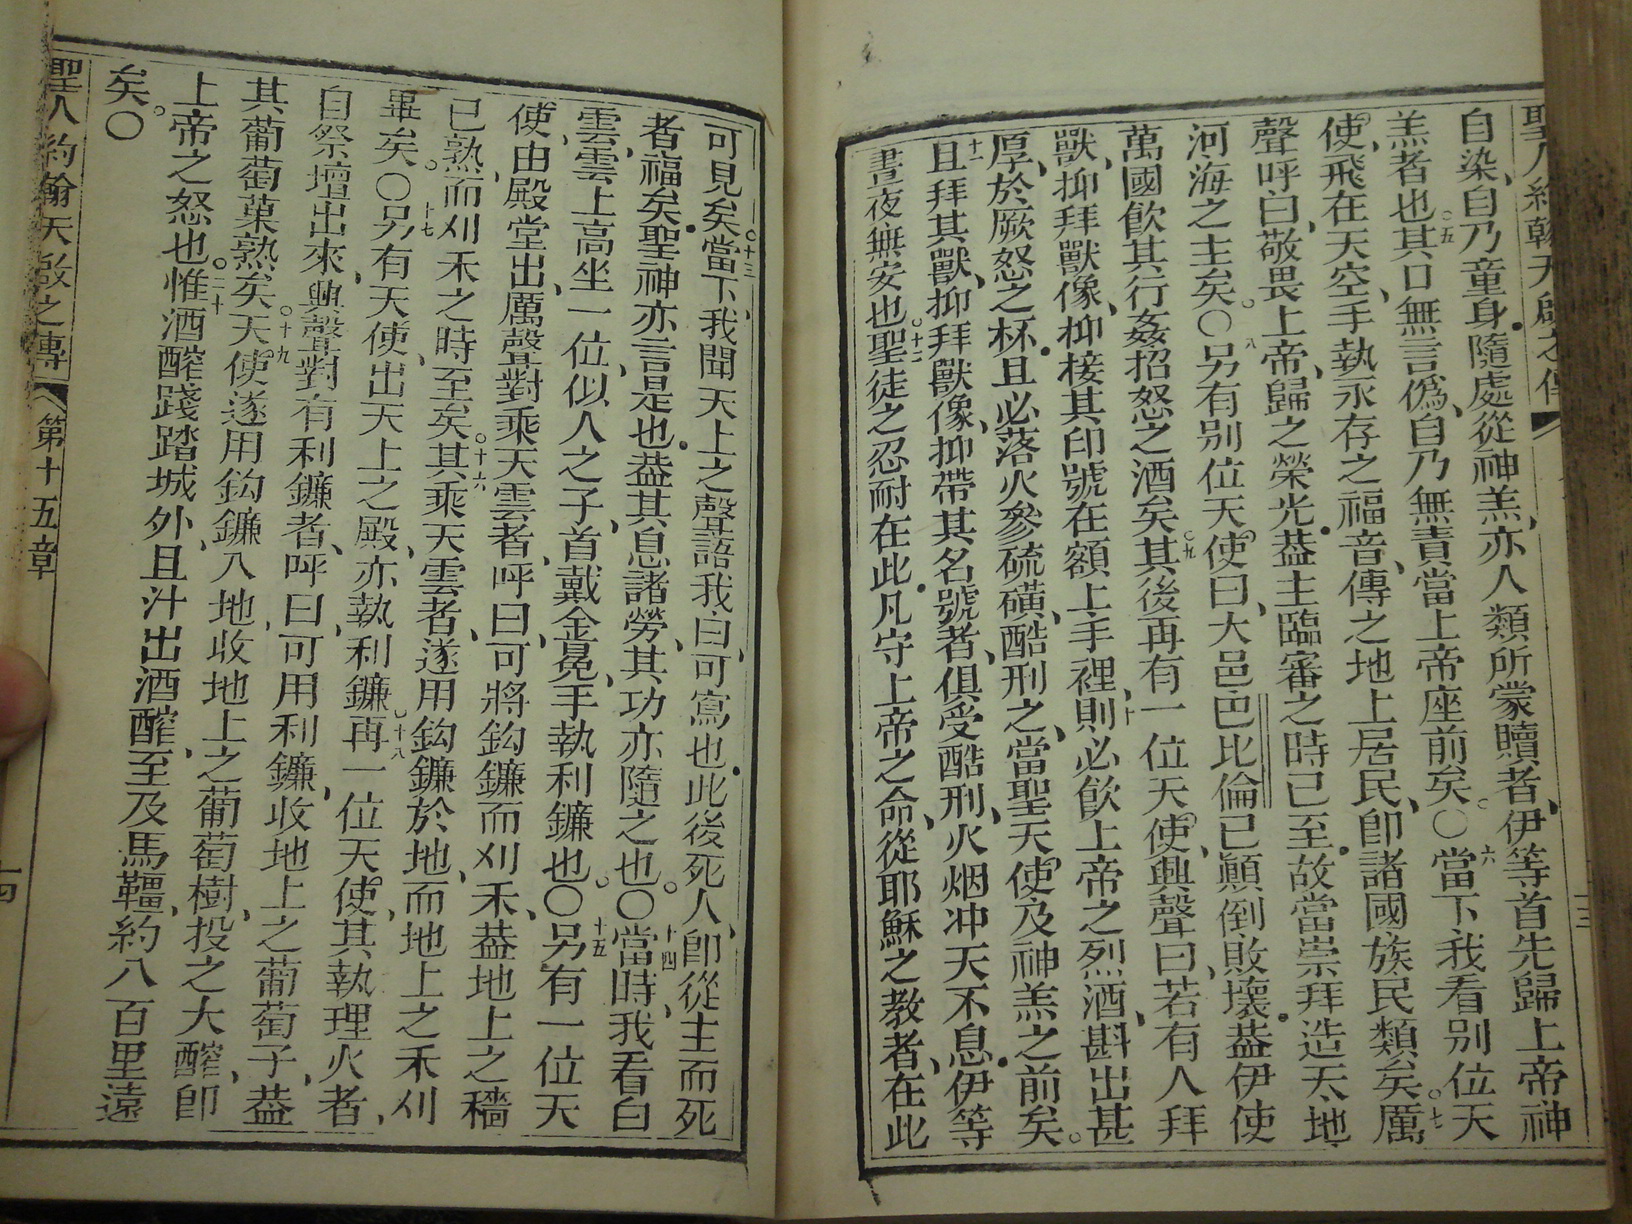 聖人約翰天啟之傳
自染、自乃童身、隨處從神羔、亦人類所蒙贖者、伊等首先歸上帝神
羔者也。五其口無言僞、自乃無責當上帝座前矣。〇六當下我看別位天
使、飛在天空、手執永存之福音、傳之地上居民、卽諸國族民類矣。七厲
聲呼曰、敬畏上帝、歸之榮光、葢主臨審之時已至、故當崇拜造天地
河海之主矣。〇八另有別位天使曰、大邑巴比倫已顚倒敗壞、葢伊使
萬國飮其行姦招怒之酒矣。九其後再有一位天使、興聲曰、若有人拜
獸、抑拜獸像、抑接其印號在額上手裡、十則必飮上帝之烈酒、斟出甚
厚、於厥怒之杯、且必落火參硫磺、酷刑之、當聖天使及神羔之前矣。
十一且拜其獸、抑拜獸像、抑帶其名號者、俱受酷刑、火烟冲天不息、伊等
晝夜無安也。十二聖徒之忍耐在此、凡守上帝之命、從耶穌之教者、在此
可見矣。〇十三當下、我聞天上之聲語我曰、可寫也、此後死人、卽從主而死
者、福矣、聖神亦言是也、葢其息諸勞、其功亦隨之也。〇十四當時、我看白
雲、雲上高坐一位、似人之子、首戴金冕、手執利鐮也。〇十五另有一位天
使、由殿堂出、厲聲對乘天雲者、呼曰、可將鈎鐮而刈禾、葢地上之穡
已熟、而刈禾之時至矣。十六其乘天雲者、遂用鈎鐮於地、而地上之禾刈
畢矣。〇十七另有天使、出天上之殿、亦執利鐮。十八再一位天使、其執理火者、
自祭壇出來、興聲對有利鐮者、呼曰、可用利鐮、收地上之葡萄子、葢
其葡萄菓熟矣。十九天使遂用鈎鐮入地、收地上之葡萄樹、投之大醡、卽
上帝之怒也。二十惟酒醡踐踏城外、且汁出酒醡、至及馬韁、約八百里遠
矣。〇
聖人約翰天啟之傳 第十五章 十四